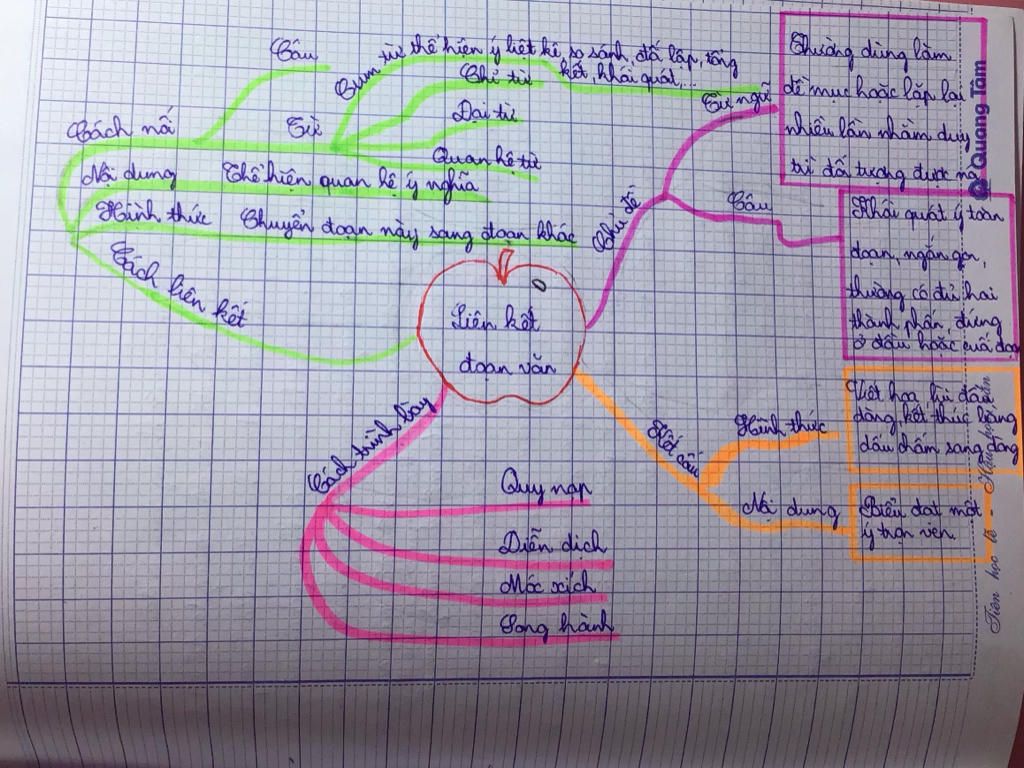 Liên kết
đoạn văn
Câu
Cụm từ thể hiện ý liệt kê, so sánh, đối lập, tổng
kết, khái quát,...
Chỉ từ
Từ
Đại từ
Quan hệ từ
Cách nối
Nội dung Thể hiện quan hệ ý nghĩa
Hình thức Chuyển đoạn này sang đoạn khác
Cách liên kết
Chủ đề
Từ ngữ
Thường dùng làm
đề mục hoặc lặp lại
nhiều lần nhằm duy
trì đối tượng được nói
Câu
Khái quát ý toàn
đoạn, ngắn gọn,
thường có đủ hai
thành phần, đứng
ở đầu hoặc cuối đoạn
Kết cấu
Hình thức
Viết hoa, lùi đầu
dòng, kết thúc bằng
dấu chấm sang dòng
Nội dung
Biểu đạt một
ý trọn vẹn.
Cách trình bày
Quy nạp
Diễn dịch
Móc xích
Song hành
Quang Tâm
Tiên học lễ - Hậu học văn